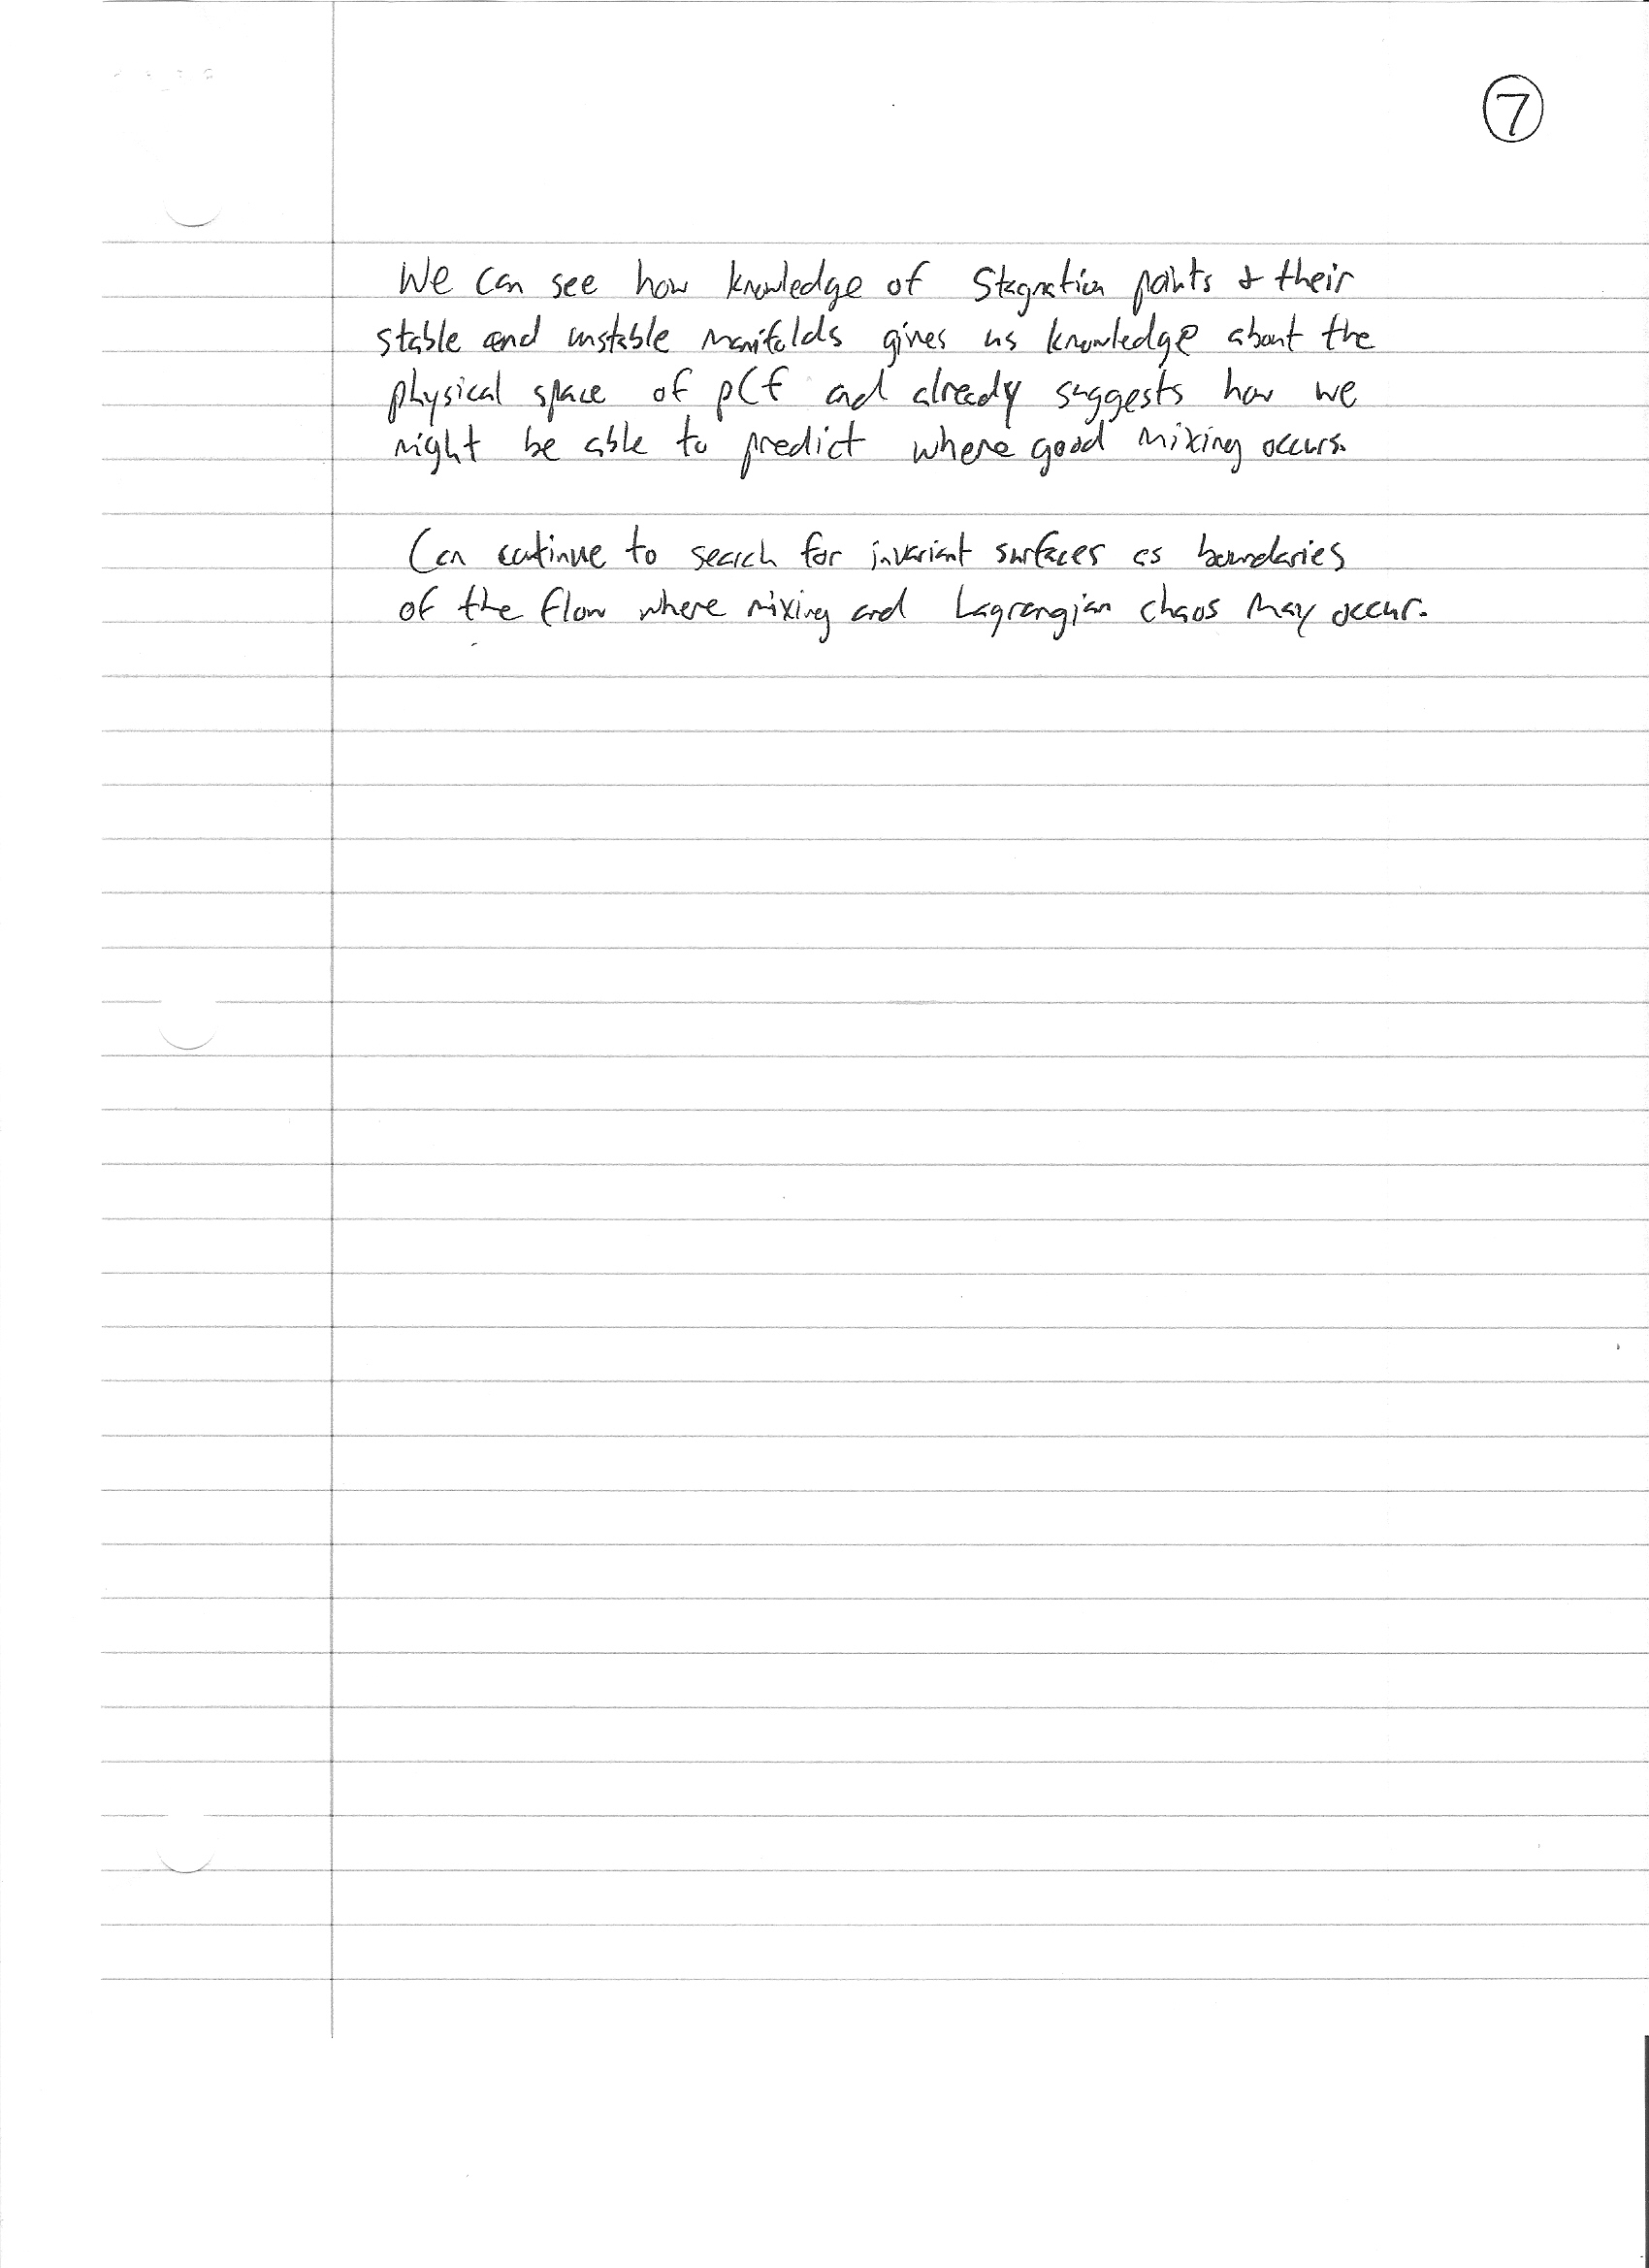 7
We can see how knowledge of stagnation points & their
stable and unstable manifolds gives us knowledge about the
physical space of pCf and already suggests how we
might be able to predict where good mixing occurs.
Can continue to search for invariant surfaces as boundaries
of the flow where mixing and Lagrangian chaos may occur.